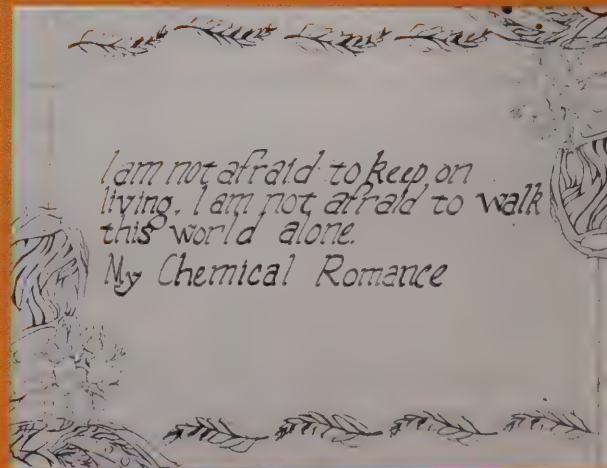 I am not afraid to keep on
living. I am not afraid to walk
this world alone.
My Chemical Romance